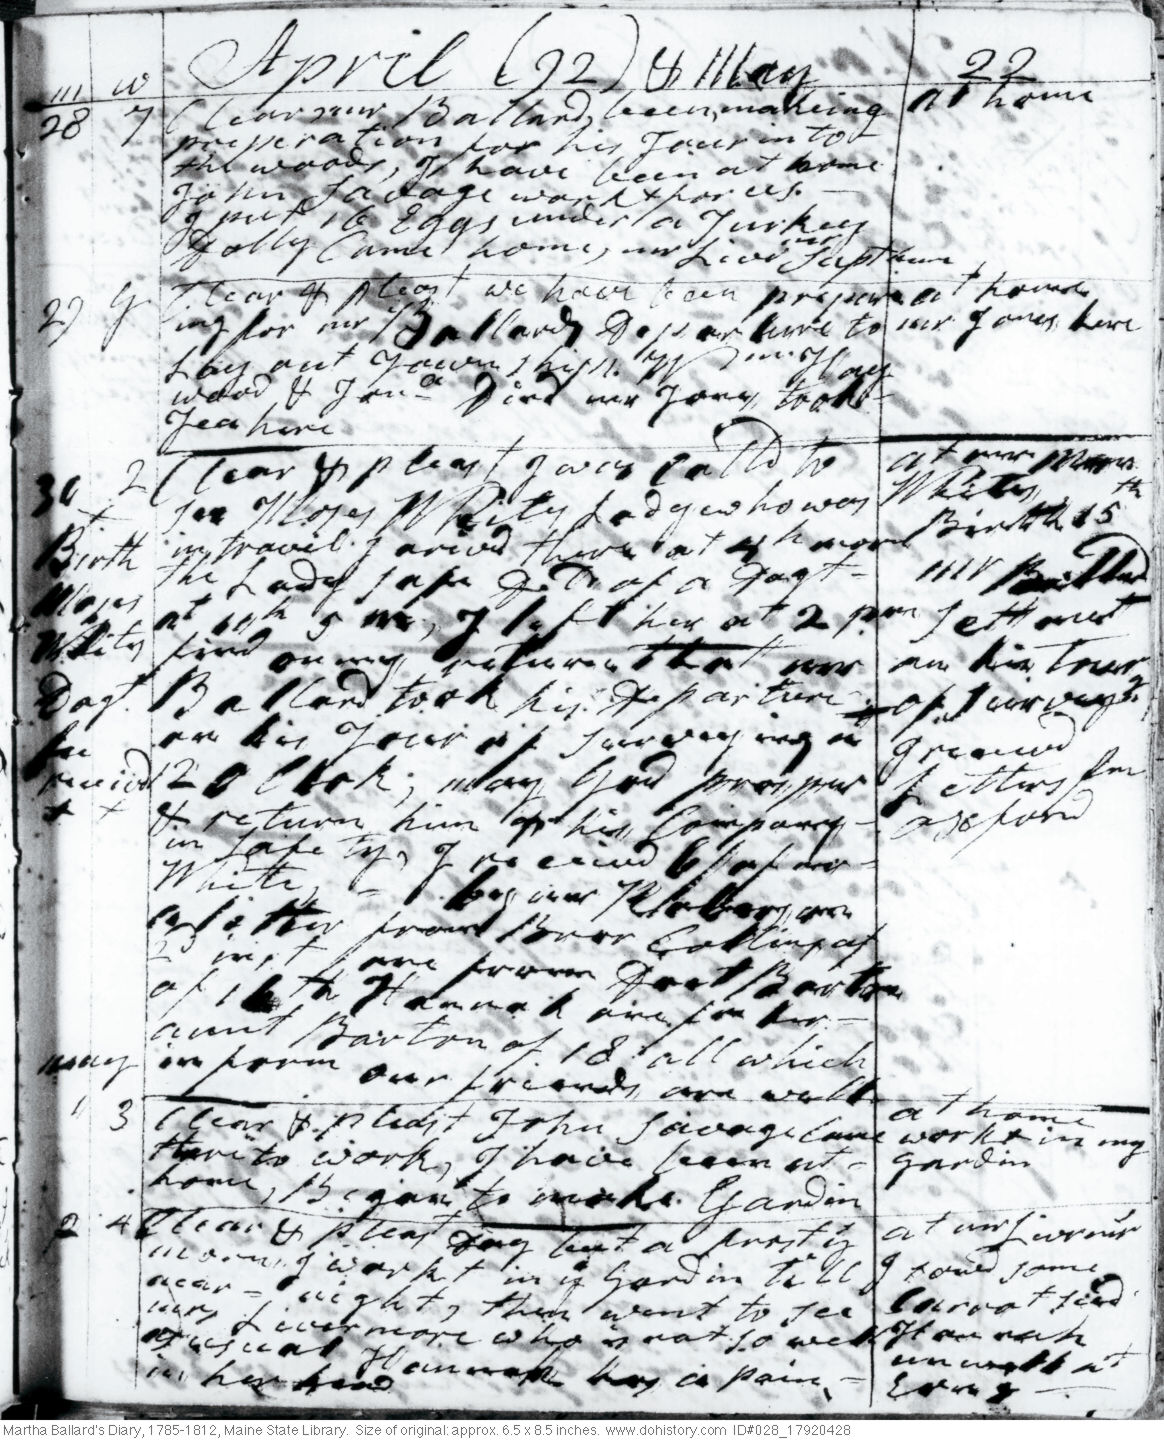 April (92) & May 22
m w
28 7 Clear mr Ballard, been, making at home
preperation for his Tour into
the woods, I have been at home
John Savage workt for us.
I put 16 Eggs under a Turkey
Dolly Came home, mr
29 g Clear & pleast, we have been prepare at home
ing for mr Ballards Departure to mr Jones here
Lay out Townships. Wm Hay
wood & Jona Died mr Jones took
Tea here
30 2 Clear & pleast I was calld to at mr Moses
see Moses Whites Lady who was Whites
in travil. I arivd there at 4 h morn Birth 15th
Birth the Lady safe Dd of a Dagt mr Ballard
Moses at 10h 5 m, I left her at 2 pm sett out
Whites find on my return that mr on his Tour
Dagt Ballard took his Departure of surveying
on his Tour of surveying at I received
receivd 12 O Clock; may God prosper Letters from
x x & return him & his Company oxford
in safety, I received 6/ of mr
White, by mr
a letter from Broe Collins of
2d inst one from Doct Barton
of 16th Hannah one from her
aunt Barton of 18 all which
may inform our friends are well
1 3 Clear & pleast John Savage Came at home
here to work, I have been at workt in my
home, Began to make Gardin gardin
2 4 Clear & pleast Day but a frosty at mr Livermors
morn, I workt in ye Gardin till I sowd some
near night, then went to see Carrot seed
mrs Livermore who is not so well Hannah
as usual Hannah has a pain unwell at
in her head Evng
Martha Ballard's Diary, 1785-1812, Maine State Library. Size of original: approx. 6.5 x 8.5 inches. www.dohistory.com ID#028_17920428